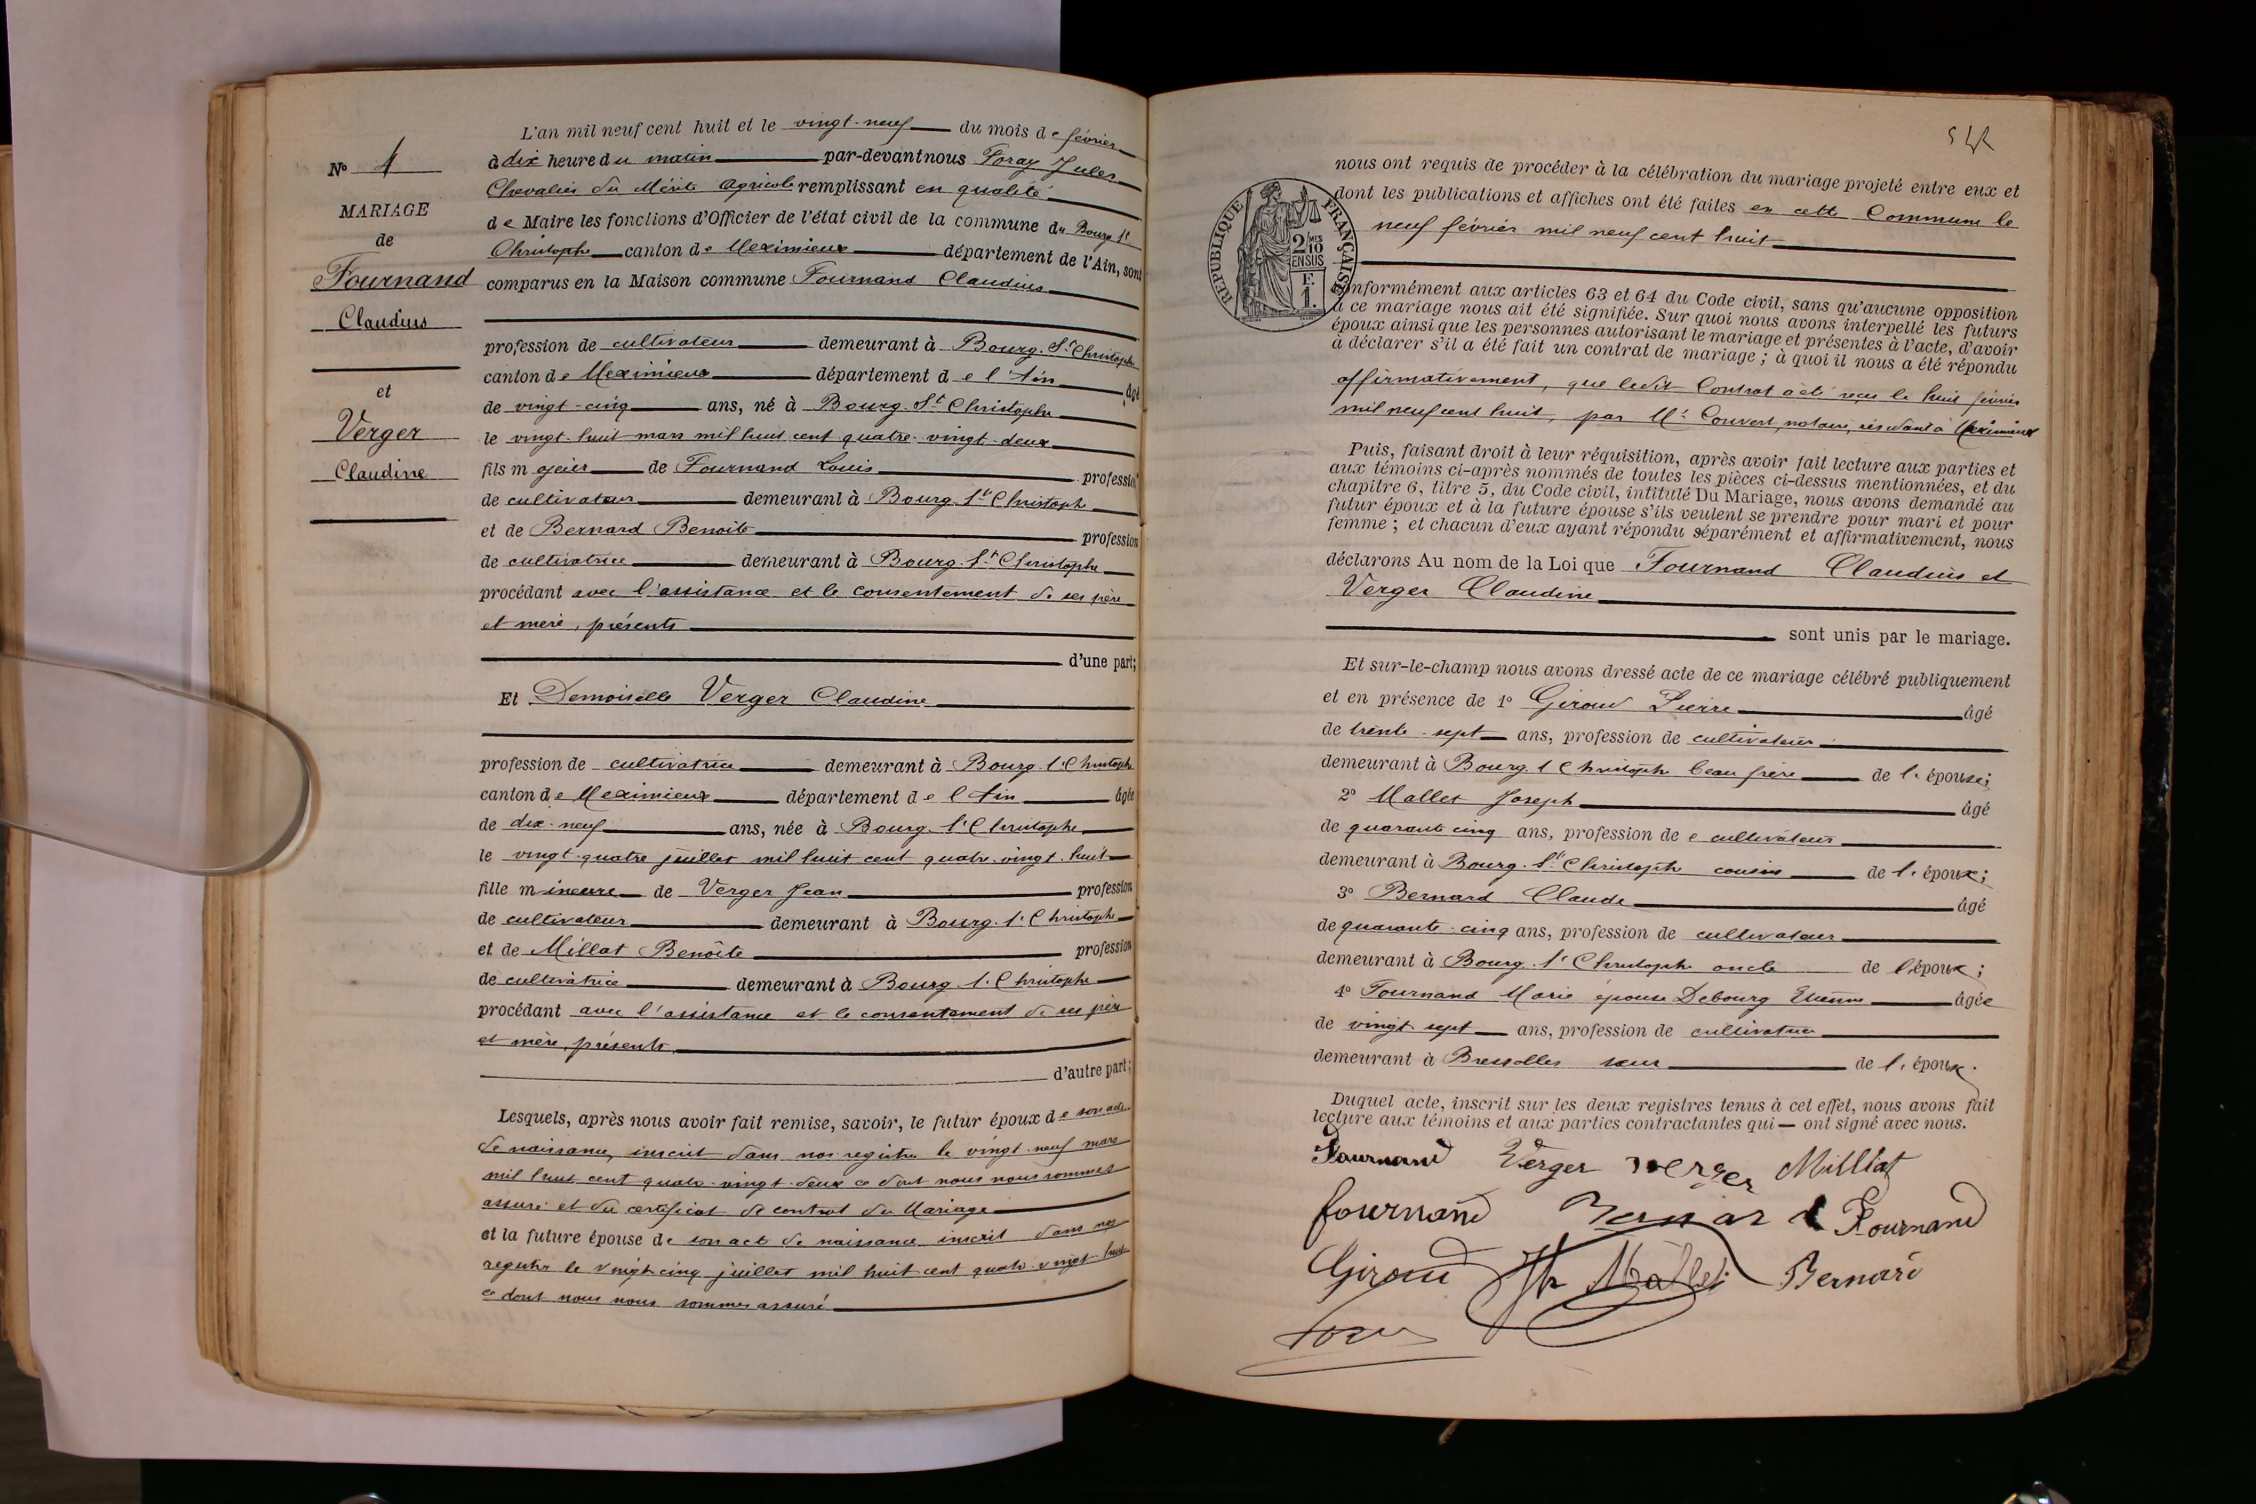 Nº 4
MARIAGE
de
Fournand
Claudius
et
Verger
Claudine
L'an mil neuf cent huit et le vingt-neuf du mois de février
à dix heure du matin par-devant nous Foray Jules
Chevalier du Mérite Agricole remplissant en qualité
de Maire les fonctions d'Officier de l'état civil de la commune du Bourg St
Christophe canton de Meximieux département de l'Ain, sont
comparus en la Maison commune Fournand Claudius
profession de cultivateur demeurant à Bourg-St Christophe
canton de Meximieux département de l'Ain âgé
de vingt-cinq ans, né à Bourg-St Christophe
le vingt-huit mars mil huit cent quatre-vingt-deux
fils majeur de Fournand Louis profession
de cultivateur demeurant à Bourg-St Christophe
et de Bernard Benoîte profession
de cultivatrice demeurant à Bourg-St Christophe
procédant avec l'assistance et le consentement de ses père
et mère, présents
d'une part;
Et Demoiselle Verger Claudine
profession de cultivatrice demeurant à Bourg St Christophe
canton de Meximieux département de l'Ain âgée
de dix-neuf ans, née à Bourg-St Christophe
le vingt-quatre juillet mil huit cent quatre-vingt-huit
fille mineure de Verger Jean profession
de cultivateur demeurant à Bourg-St Christophe
et de Millat Benoîte profession
de cultivatrice demeurant à Bourg St Christophe
procédant avec l'assistance et le consentement de ses père
et mère, présents,
d'autre part;
Lesquels, après nous avoir fait remise, savoir, le futur époux de son acte
de naissance, inscrit dans nos registres le vingt-neuf mars
mil huit cent quatre-vingt-deux ce dont nous nous sommes
assuré et du certificat de contrat de Mariage
et la future épouse de son acte de naissance inscrit dans nos
registres le vingt-cinq juillet mil huit cent quatre-vingt-huit
ce dont nous nous sommes assuré
RÉPUBLIQUE FRANÇAISE
2/10 EN SUS
F. 1.
nous ont requis de procéder à la célébration du mariage projeté entre eux et
dont les publications et affiches ont été faites en cette Commune le
neuf février mil neuf cent huit
conformément aux articles 63 et 64 du Code civil, sans qu'aucune opposition
à ce mariage nous ait été signifiée. Sur quoi nous avons interpellé les futurs
époux ainsi que les personnes autorisant le mariage et présentes à l'acte, d'avoir
à déclarer s'il a été fait un contrat de mariage ; à quoi il nous a été répondu
affirmativement, que ledit Contrat a été reçu le huit février
mil neuf cent huit, par Me Convert, notaire, résidant à Meximieux
Puis, faisant droit à leur réquisition, après avoir fait lecture aux parties et
aux témoins ci-après nommés de toutes les pièces ci-dessus mentionnées, et du
chapitre 6, titre 5, du Code civil, intitulé Du Mariage, nous avons demandé au
futur époux et à la future épouse s'ils veulent se prendre pour mari et pour
femme ; et chacun d'eux ayant répondu séparément et affirmativement, nous
déclarons Au nom de la Loi que Fournand Claudius et
Verger Claudine
sont unis par le mariage.
Et sur-le-champ nous avons dressé acte de ce mariage célébré publiquement
et en présence de 1º Giroud Pierre âgé
de trente-sept ans, profession de cultivateur
demeurant à Bourg St Christophe beau frère de l'épouse;
2º Mallet Joseph âgé
de quarante cinq ans, profession de cultivateur
demeurant à Bourg-St Christophe cousin de l'époux;
3º Bernard Claude âgé
de quarante-cinq ans, profession de cultivateur
demeurant à Bourg-St Christophe oncle de l'époux;
4º Fournand Marie épouse Debourg Etienne âgée
de vingt-sept ans, profession de cultivatrice
demeurant à Bressolles sœur de l'époux.
Duquel acte, inscrit sur les deux registres tenus à cet effet, nous avons fait
lecture aux témoins et aux parties contractantes qui ont signé avec nous.
Fournand Verger verger Milliat
fournand Bernard Fournand
Giroud Jh Mallet Bernard
Foray